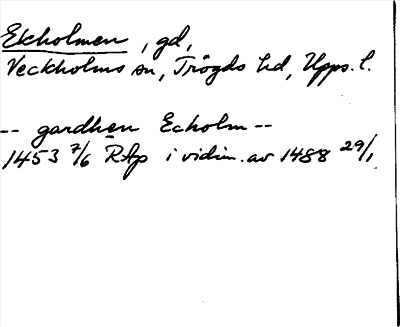 Ekholmen, gd,
Veckholms sn, Trögds hd, Upps. l.
-- gardhen Echolm --
1453 7/6 RAp i vidim. av 1488 29/1